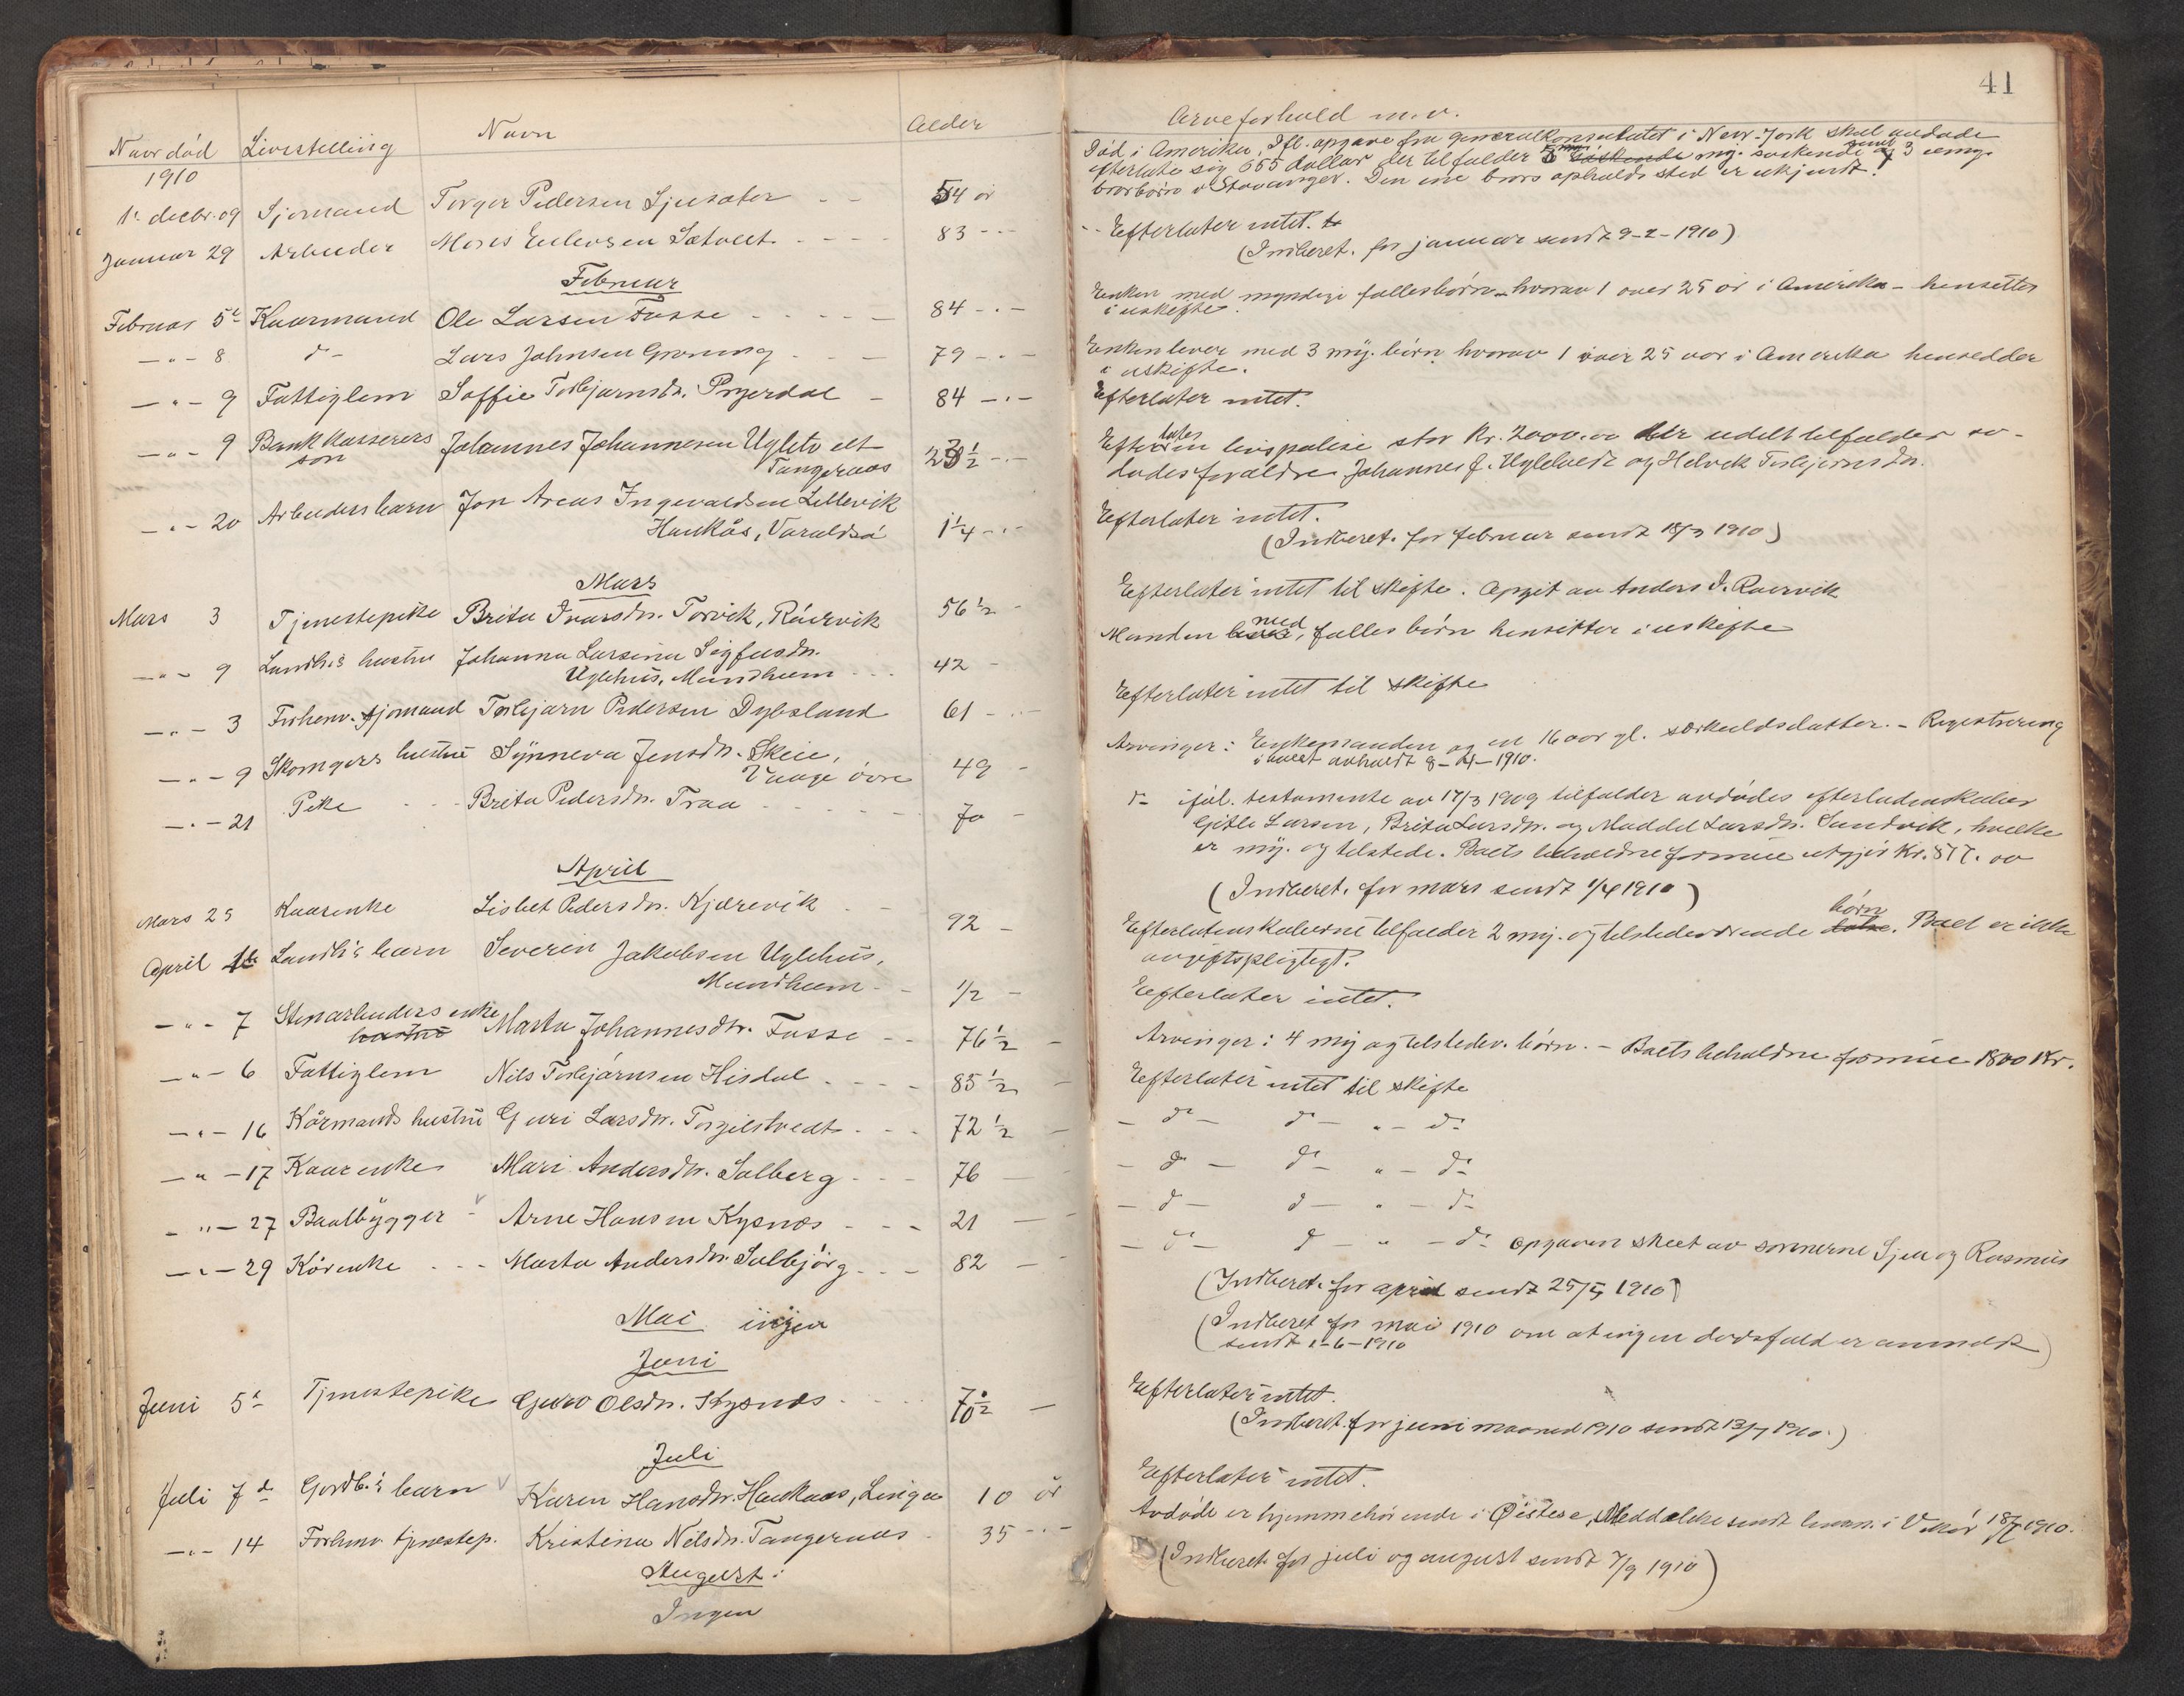 Naar død Livsstelling Navn Alder
1910
1ste decbr. 09 Sjømand Torger Pedersen Sjusæter 54 år
Januar 29 Arbeider Mons Eilevsen Sætvedt 83
Februar
Februar 5te Kaarmand Ole Larsen Fosse 84
— " — 8 do Lars Johnsen Grøning 79
— " — 9 Fattiglem Soffie Torbjørnsdr. 84
— " — 9 Bankkasserers Johannes Johannesen Ugletveit
søn Tangeraas
— " — 20 Arbeiders barn Jon Areas Ingevaldsen Lillevik
Haukås, Varaldsø 1 1/4
Mars
Mars 3 Tjenestepike Brita Ivarsdr. Torvik, Råervik 56 1/2
— " — 9 Landh's hustru Johanna Larsina Sigfusdr.
Uglehus, Mundheim 42
— " — 3 Forhenv. sjømand Torbjørn Pedersen Dybsland 61
— " — 9 Skomgers hustru Synneva Jensdr. Skeie,
Vaage övre 49
— " — 21 Pike Brita Pedersdr. Traa 70
April
Mars 25 Kaarenke Lisbet Pedersdr. Kjærevik 92
April Landh's barn Severin Jakobsen Uglehus,
Mundheim 1/2
— " — 7 Stenarbeiders enke
hustru Marta Johannesdtr. Fosse 76 1/2
— " — 6 Fattiglem Nils Torbjørnsen Hisdal 85 1/2
— " — 16 Kårmands hustru Guri Larsdtr. Torgilstvedt 72 1/2
— " — 17 Kaarenke Mari Andersdtr. Solberg 76
— " — 27 Baatbygger Arne Hansen Kysnæs 21
— " — 29 Kårenke Marta Andersdtr. Solbjørg 82
Mai ingen
Juni
Juni 5te Tjenestepike Guro Olsdtr. Kysnæs 70 1/2
Juli
Juli 7de Gardb.'s barn Karen Hansdtr. Haukaas, Linga 10 år
— " — 14 Forhenv. tjenestep. Kristina Nilsdtr. Tangeraas 35
August:
Ingen
41
Arveforhold m.v.
Død i Amerika. Ifl. opgave fra generalkonsulatet i New-York skal avdøde
efterlate sig 655 dollar der tilfalder 5 søskende myn. søskende samt 3 umyn.
brorbørn i Stavanger. Den ene brors opholdssted er ukjendt.
Efterlater intet.
(Indberet. for januar sendt 9-2-1910)
Enken med myndige fællesbørn hvorav 1 over 25 år i Amerika - hensitter
i uskifte.
Enken lever med 3 myn. børn hvorav 1 over 25 aar i Amerika hensidder
i uskifte.
Efterlater intet.
Efterlater en livspolise stor Kr. 2000.00 der udelt tilfalder av-
dødes forældre Johannes J. Ugletvedt og Helvik Torbjørnsdr.
Efterlater intet.
(Indberet. for februar sendt 18/3 1910)
Efterlater intet til skifte. Opgit av Anders I. Raervik
Manden med fælles børn hensitter i uskifte
Efterlater intet til skifte
Arvinger: Enkemanden og en 16 aar gl. særkuldsdatter. - Registrering
i boet avholdt 8-4-1910.
do iføl. testamente av 17/3 1909 tilfalder avdødes efterladenskaber
Gitle Larsen, Brita Larsdr. og Maddel Larsdr. Sundvik, hvilke
er myn. og tilstede. Boets beholdne formue utgjør Kr. 577.00
(Indberet. for mars sendt 1/4 1910)
Efterlatenskaberne tilfalder 2 myn. og tilstedeværende børn. Boet er ikke
avgiftspligtigt.
Efterlater intet.
Arvinger: 4 myn og tilstedev. børn. - Boets beholdne formue 1800 Kr.
Efterlater intet til skifte
— do — do — " — do
— do — do — " — do
— do — do — " — do
— do — do — " — do Opgaven skeet av sønnerne Sjur og Rasmus
(Indberet. for april sendt 25/5 1910)
(Indberet for mai 1910 om at ingen dødsfald er anmeldt
sendt 1-6-1910)
Efterlater intet.
(Indberet. for juni maaned 1910 sendt 13/7 1910.)
Efterlater intet.
Avdøde er hjemmehørende i Østese, Meddelelse sendt lensm. i Vikør 18/7 1910.
(Indberet. for juli og august sendt 7/9 1910)